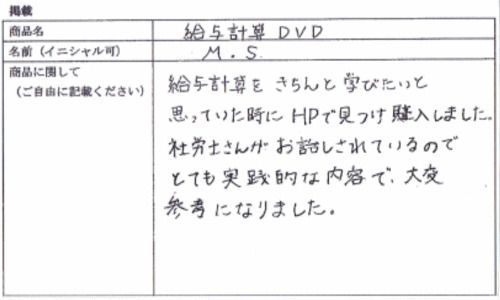 掲載
商品名 給与計算DVD
名前（イニシャル可） M.S
商品に関して
（ご自由に記載ください）
給与計算をきちんと学びたいと
思っていた時にHPで見つけ購入しました。
社労士さんがお話しされているので
とても実践的な内容で、大変
参考になりました。